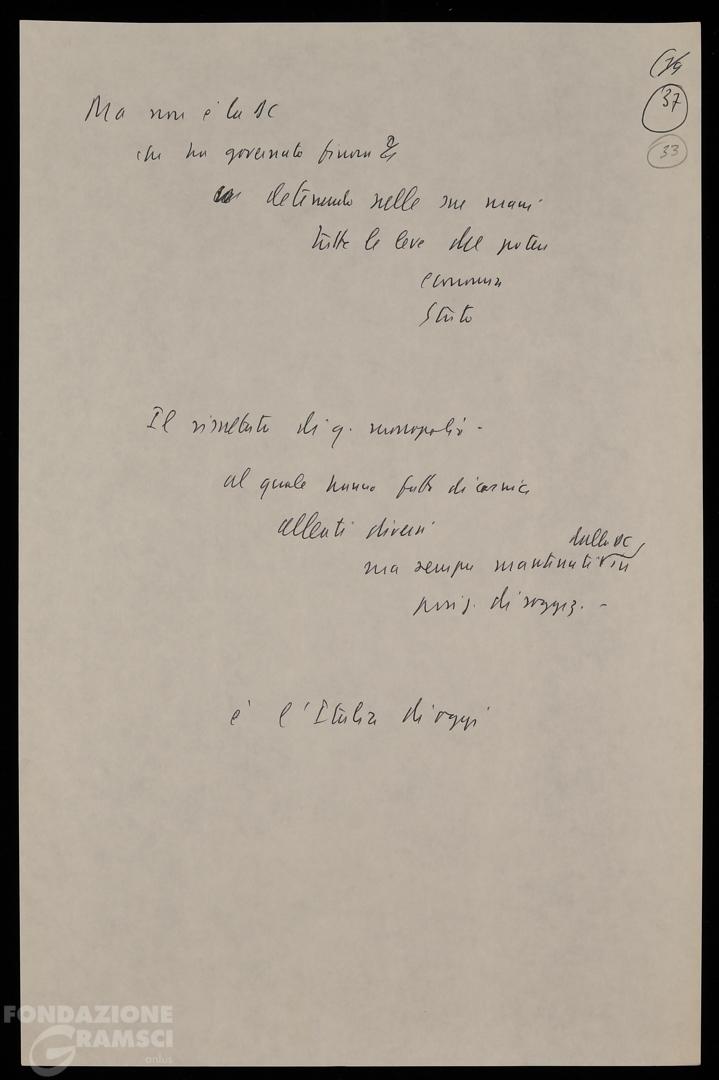 37
33
Ma non è la DC
che ha governato finora
detenendo nelle sue mani
tutte le leve del potere
economia
Stato
Il risultato di q. monopolio -
al quale hanno fatto di cornice
alleati diversi
dalla DC
ma sempre mantenuti in
posiz. di soggez. -
è l'Italia di oggi
FONDAZIONE
GRAMSCI
onlus